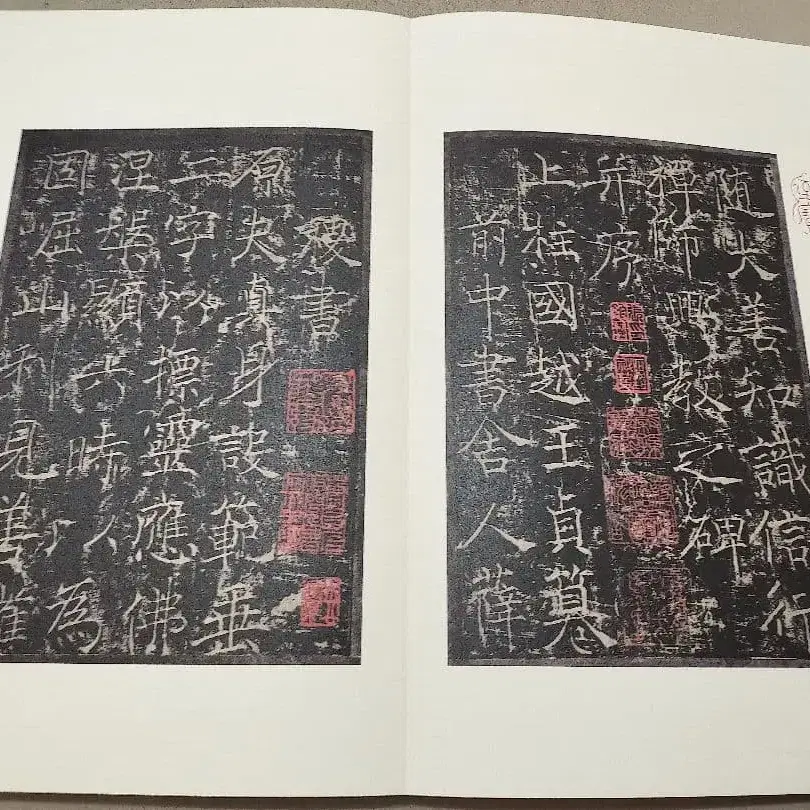 随大善知識信行
禪師興教之碑
并序
上柱國越王貞篹
前中書舍人薛
稷書
原夫真身設範垂
二字以標靈應佛
涅槃顯六時以為
屈此利見善權